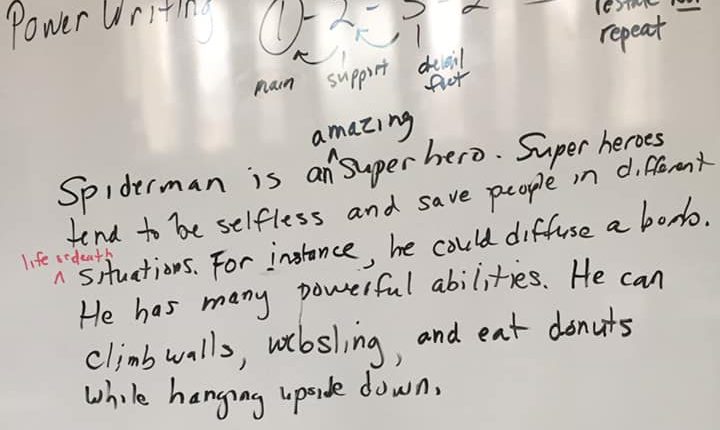 Power Writing 1 - 2 - 3 - 2
repeat
main support detail
fact
amazing
Spiderman is an ^ super hero. Super heroes
tend to be selfless and save people in different
life or death
^ situations. For instance, he could diffuse a bomb.
He has many powerful abilities. He can
climb walls, websling, and eat donuts
while hanging upside down.